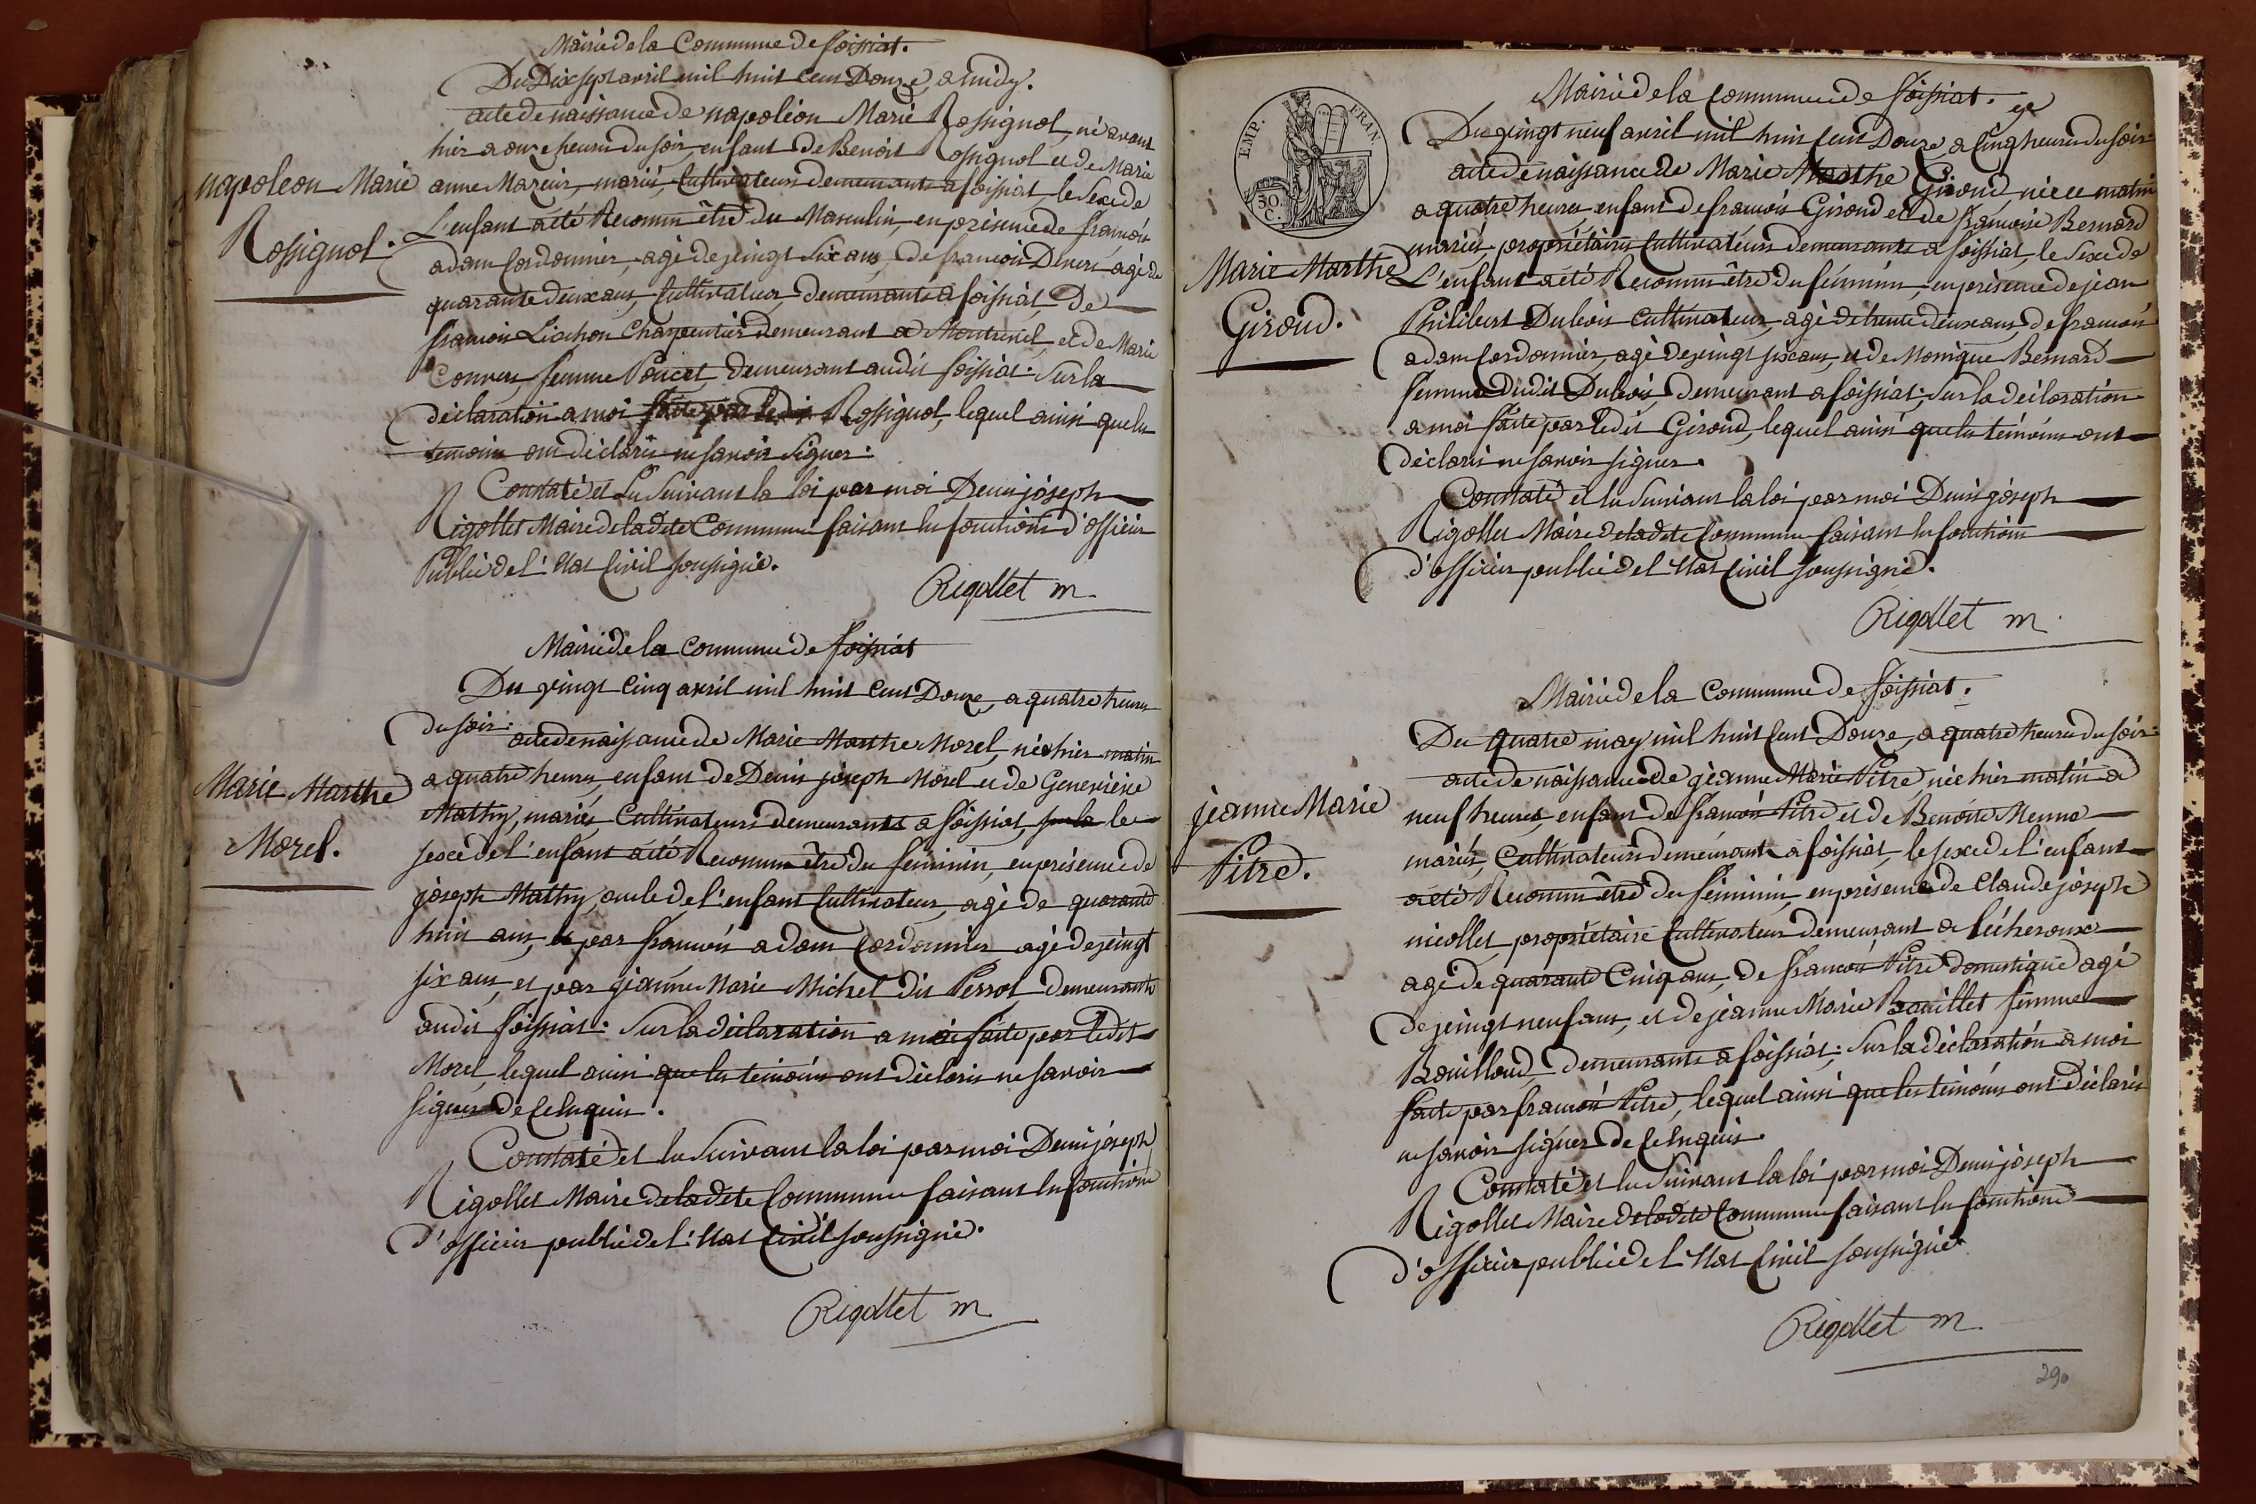 Mairie de la Commune de foissiat.
Du Dix sept avril mil huit cent Douze, a midy.
acte de naissance de napoléon Marie Rossignol, né avant
hier a onze heures du soir, enfant de Benoit Rossignol et de Marie
anne, mariés, Cultivateurs demeurants a foissiat, le sexe de
L'enfant a été Reconnu être du Masculin, en présence de francois
adam Cordonnier, agé de vingt six ans, de francois agé de
quarante deux ans, Cultivateur, demeurants a foissiat, De
francois Charpentier demeurant a, et de Marie
femme Poncet, demeurant audit foissiat. Sur la
déclaration a moi faite par ledit Rossignol, lequel ainsi que les
temoins ont déclaré ne savoir signer.
Constaté et Lu Suivant la loi par moi Denis joseph
Rigollet Maire de ladite Commune faisant les fonctions d'officier
Public de l'Etat Civil soussigné.
Rigollet m.
napoleon Marie
Rossignol.
Mairie de la Commune de foissiat
Du vingt Cinq avril mil huit Cent Douze, a quatre heures
du soir. acte de naissance de Marie Marthe Morel, née hier matin
a quatre heures, enfant de Denis joseph Morel et de Genevieve
Mathy, mariés, Cultivateurs demeurants a foissiat, le
sexe de l'enfant a été Reconnu être du féminin, en présence de
joseph Mathy, oncle de l'enfant Cultivateur, agé de quarante
huit ans, et par francois adam Cordonnier agé de vingt
six ans, et par jeanne Marie Michel dit Perrot demeurants
audit foissiat. Sur la déclaration a moi faite par ledit
Morel, lequel ainsi que les témoins ont déclaré ne savoir
signer de ce enquis.
Constaté et lu Suivant la loi par moi Denis joseph
Rigollet Maire de ladite Commune faisant les fonctions
d'officier public de l'Etat Civil soussigné.
Rigollet m
Marie Marthe
Morel.
EMP. FRAN.
50.
C.
Mairie de la Commune de foissiat.
Du vingt neuf avril mil huit Cent Douze, a Cinq heures du soir.
acte de naissance de Marie Marthe Giroud, née ce matin
a quatre heures, enfant de francois Giroud et de francoise Bernard
mariés, propriétaires Cultivateurs demeurants a foissiat, le sexe de
L'enfant a été Reconnu être du féminin, en présence de jean
Philibert Dubois Cultivateur, agé de trente deux ans, de francois
adam Cordonnier, agé de vingt six ans, et de Monique Bernard
femme dudit Dubois, demeurant a foissiat; Sur la déclaration
a moi faite par ledit Giroud, lequel ainsi que les témoins ont
déclaré ne savoir signer.
Constaté et lu Suivant la loi par moi Denis joseph
Rigollet Maire de ladite Commune faisant les fonctions
d'officier public de l'Etat Civil soussigné.
Rigollet m.
Marie Marthe
Giroud.
Mairie de la Commune de foissiat.
Du quatre may mil huit Cent Douze, a quatre heures du soir.
acte de naissance de jeanne Marie Pitre, née hier matin a
neuf heures, enfant de francois Pitre et de Benoite Menne
mariés, Cultivateurs demeurants a foissiat, le sexe de l'enfant
a été Reconnu être du féminin, en présence de Claude joseph
nicollet, propriétaire Cultivateur demeurant a lécheroux
agé de quarante Cinq ans, de francois Pitre domestique agé
de vingt neuf ans, et de jeanne Marie Bouillet femme
Bouilloud, demeurants a foissiat; Sur la déclaration a moi
faite par francois Pitre, lequel ainsi que les témoins ont déclaré
ne savoir signer de ce enquis.
Constaté et lu Suivant la loi par moi Denis joseph
Rigollet Maire de ladite Commune faisant les fonctions
d'officier public de l'Etat Civil soussigné
Rigollet m
jeanne Marie
Pitre.
290